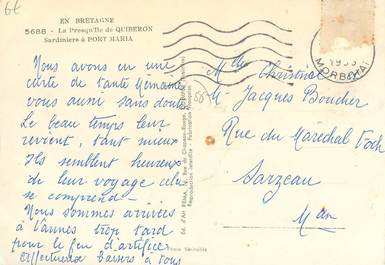 6€
EN BRETAGNE
5688 - La Presqu'île de QUIBERON
Sardiniers à PORT MARIA
Nous avons eu une
carte de tante Mémaine
vous aussi sans doute
Le beau temps leur
revient, tant mieux
Ils semblent heureux
de leur voyage cela
se comprend -
Nous sommes arrivés
à Vannes trop tard
pour le feu d'artifice
Affectueux baisers à tous
Ed. d'Art
Reproduction interdite - Fabrication Française
Photo Véritable
MORBIHAN
Christine
M. Jacques Boucher
Rue du Maréchal Foch
Sarzeau
M an